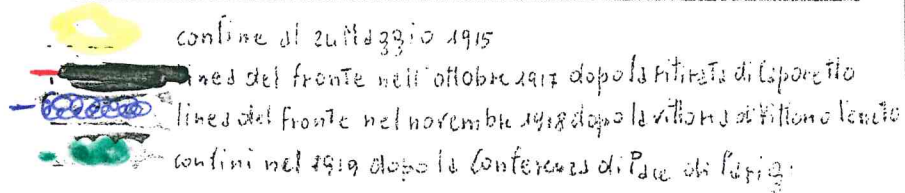 confine al 24 Maggio 1915
linea del fronte nell'ottobre 1917 dopo la ritirata di Caporetto
linea del fronte nel novembre 1918 dopo la vittoria di Vittorio Veneto
confini nel 1919 dopo la Conferenza di Pace di Parigi